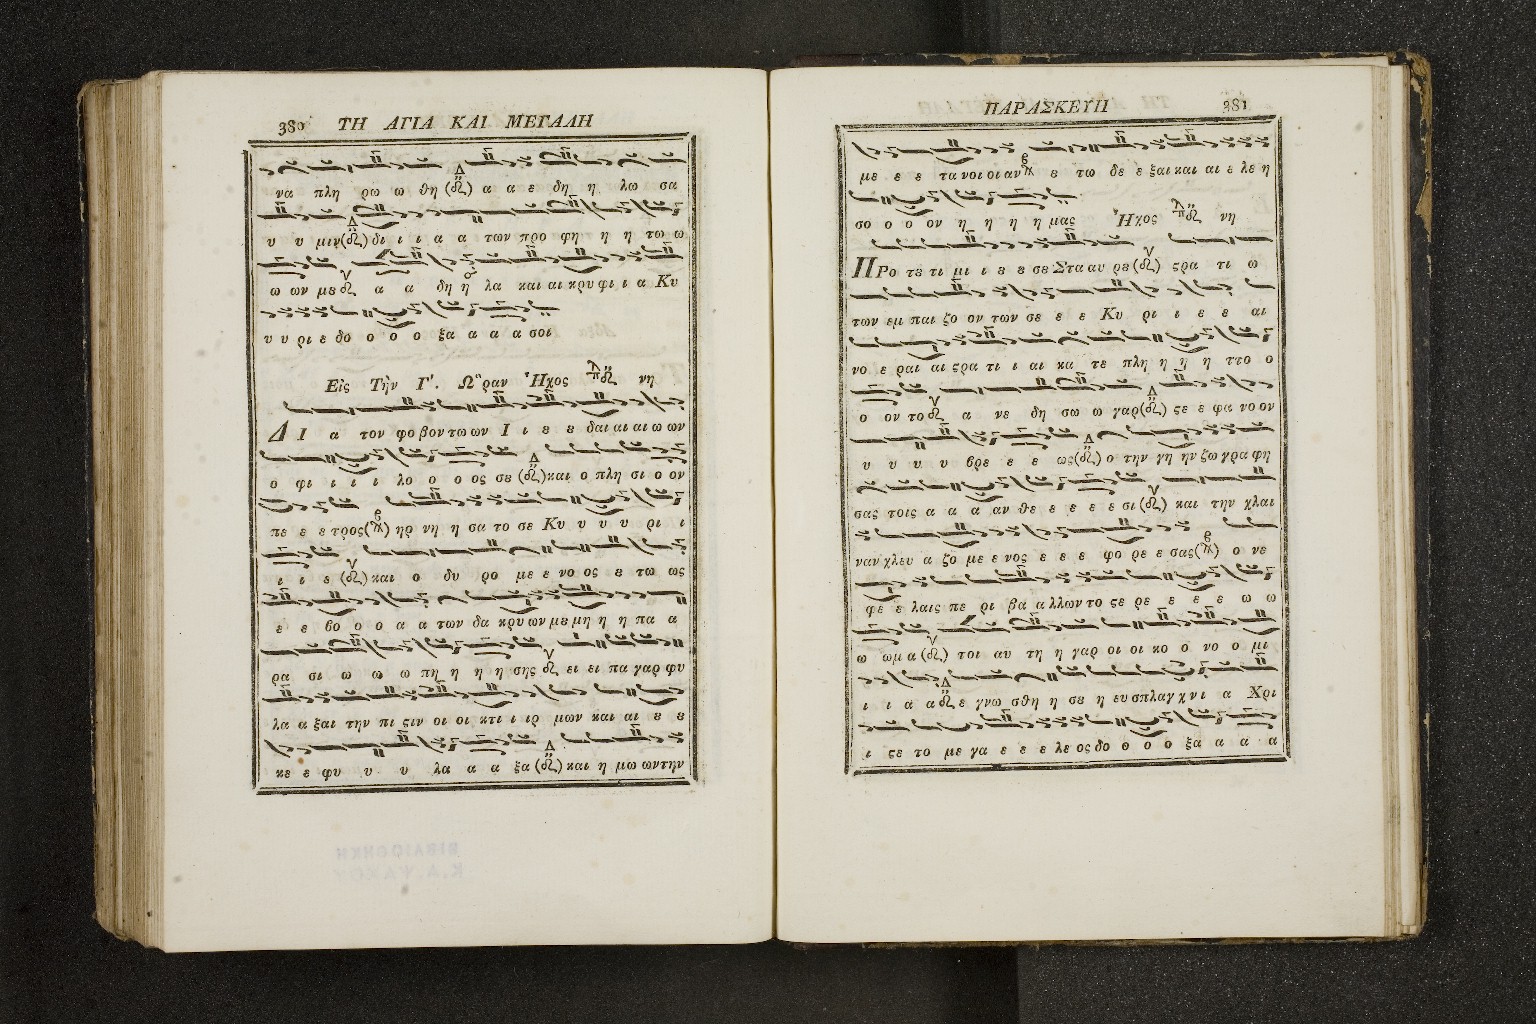 380 ΤΗ ΑΓΙΑ ΚΑΙ ΜΕΓΑΛΗ
να πλη ρω ω θη α α ε δη η λω σα
υ υ μιν δι ι ι α α των προ φη η η τω ω
ω ων με α α δη η λα και αι κρυ φι ι α Κυ
υ υ ρι ε δο ο ο ο ξα α α α σοι
Εἰς Τὴν Γ΄. Ὥραν Ἦχος νη
ΔΙ α τον φο βον τω ων Ι ι ȣ ȣ δαι αι αι ω ων
ο φι ι ι ι λο ο ο ος σȣ και ο πλη σι ο ον
πε ε ε τρος ηρ νη η σα το σε Κυ υ υ υ ρι ι
ι ι ε και ο δυ ρο με ε νο ος ȣ τω ως
ε ε βο ο ο α α των δα κρυ ων μȣ μη η η πα α
ρα σι ω ω ω πη η η η σης ει ει πα γαρ φυ
λα α ξαι την πι ϛιν οι οι κτι ι ιρ μων και αι ȣ ȣ
κε ε φυ υ υ λα α α ξα και η μω ων την
ΠΑΡΑΣΚΕΥΗ 381
με ε ε τα νοι οι αν ȣ τω δε ε ξαι και αι ε λε η
σο ο ο ον η η η η μας Ἦχος νη
ΠΡο τȣ τι μι ι ȣ ȣ σȣ Στα αυ ρȣ ϛρα τι ω
των εμ παι ζο ον των σε ε ε Κυ ρι ι ε ε αι
νο ε ραι αι ϛρα τι ι αι κα τε πλη η η η ττο ο
ο ον το α νε δη σω ω γαρ ϛε ε φα νο ον
υ υ υ υ βρε ε ε ως ο την γη ην ζω γρα φη
σας τοις α α α αν θε ε ε ε ε σι και την χλαι
ναν χλευ α ζο με ε νος ε ε ε φο ρε ε σας ο νε
φε ε λαις πε ρι βα α λλων το ϛε ρε ε ε ε ω ω
ω ωμ α τοι αυ τη η γαρ οι οι κο ο νο ο μι
ι ι α α ε γνω σθη η σȣ η ευ σπλαγχνι α Χρι
ι ϛε το με γα ε ε ε λε ος δο ο ο ο ξα α α α